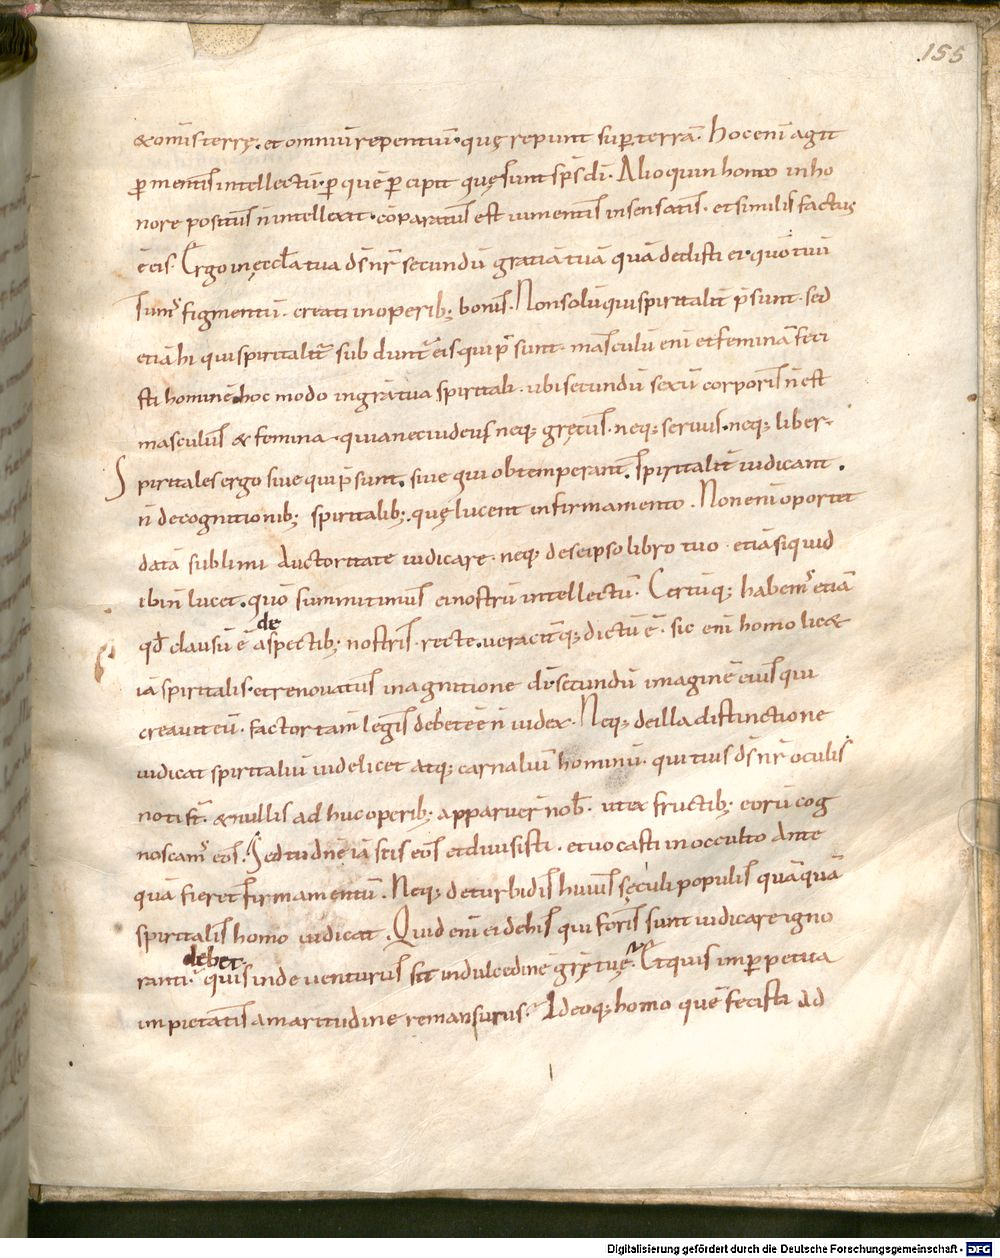 155
& om̅is terrę. et omniū repentiū· quę repunt sup̱ terrā. Hoc eni̅ agit
ꝑ mentis intellectū· ꝑ quē ꝑcipit quę sunt sp̅s dī. Alioquin homo in ho
nore positus n̄ intellexit· cōparatus est iumentis insensatis· et similis factus
ē eis. Ergo in ęccl̄a tua d̅s n̅r secundū gratiā tuā quā dedisti ei· quō tuū
sumꝰ figmentū· creati in operib; bonis. Non solū qui spiritalit̄ p̄sunt· sed
etiā hi qui spiritalit̄ subduntr̄ eis qui p̄sunt· masculū eni̅ et feminā feci
sti hominē hoc modo in gr̄a tua spiritali· ubi secundū sexū corporis n̄ est
masculus & femina· quia nec iudeus neq; gręcus· neq; seruus· neq; liber·
Spiritales ergo siue qui p̄sunt. siue qui obtemperant. spiritalit̄ iudicant.
n̄ de cognitionib; spiritalib;. quę lucent in firmamento. Non eni̅ oportet
datā sublimi auctoritate iudicare· neq; de seipso libro tuo· etiā si quid
ibi n̄ lucet. quō summittimus ei nostrū intellectū. Certūq; habemꝰ etiā
de
qd̄ clausū ē aspectib; nostris· recte. ueracit̄q; dictū ē. sic eni̅ homo lic&
iā spiritalis· et renouatus in agnitione dī· secundū imaginē eius qui
creauit eū. factor tam̄ legis debet ēē n̄ iudex. Neq; de illa distinctione
iudicat spiritaliū uidelicet atq; carnaliū hominū· qui tuis d̅s n̅r oculis
noti st̄. & nullis adhuc operib; apparuer̄ nob̄. ut ex fructib; eorū cog
noscamꝰ eos. Sed tu dn̄e iā scis eos et diuisisti. et uocasti in occulto ante
quā fieret firmamentū. Neq; de turbidis huius sęculi populis quāquā
spiritalis homo iudicat. Quid eni̅ ei de his qui foris sunt iudicare igno
debet·
ranti· quis inde uenturus sit in dulcedinē gr̄ę tuę. Et quis in perpetua
impietatis amaritudine remansurus. Ideoq; homo quē fecisti ad
Digitalisierung gefördert durch die Deutsche Forschungsgemeinschaft - DFG